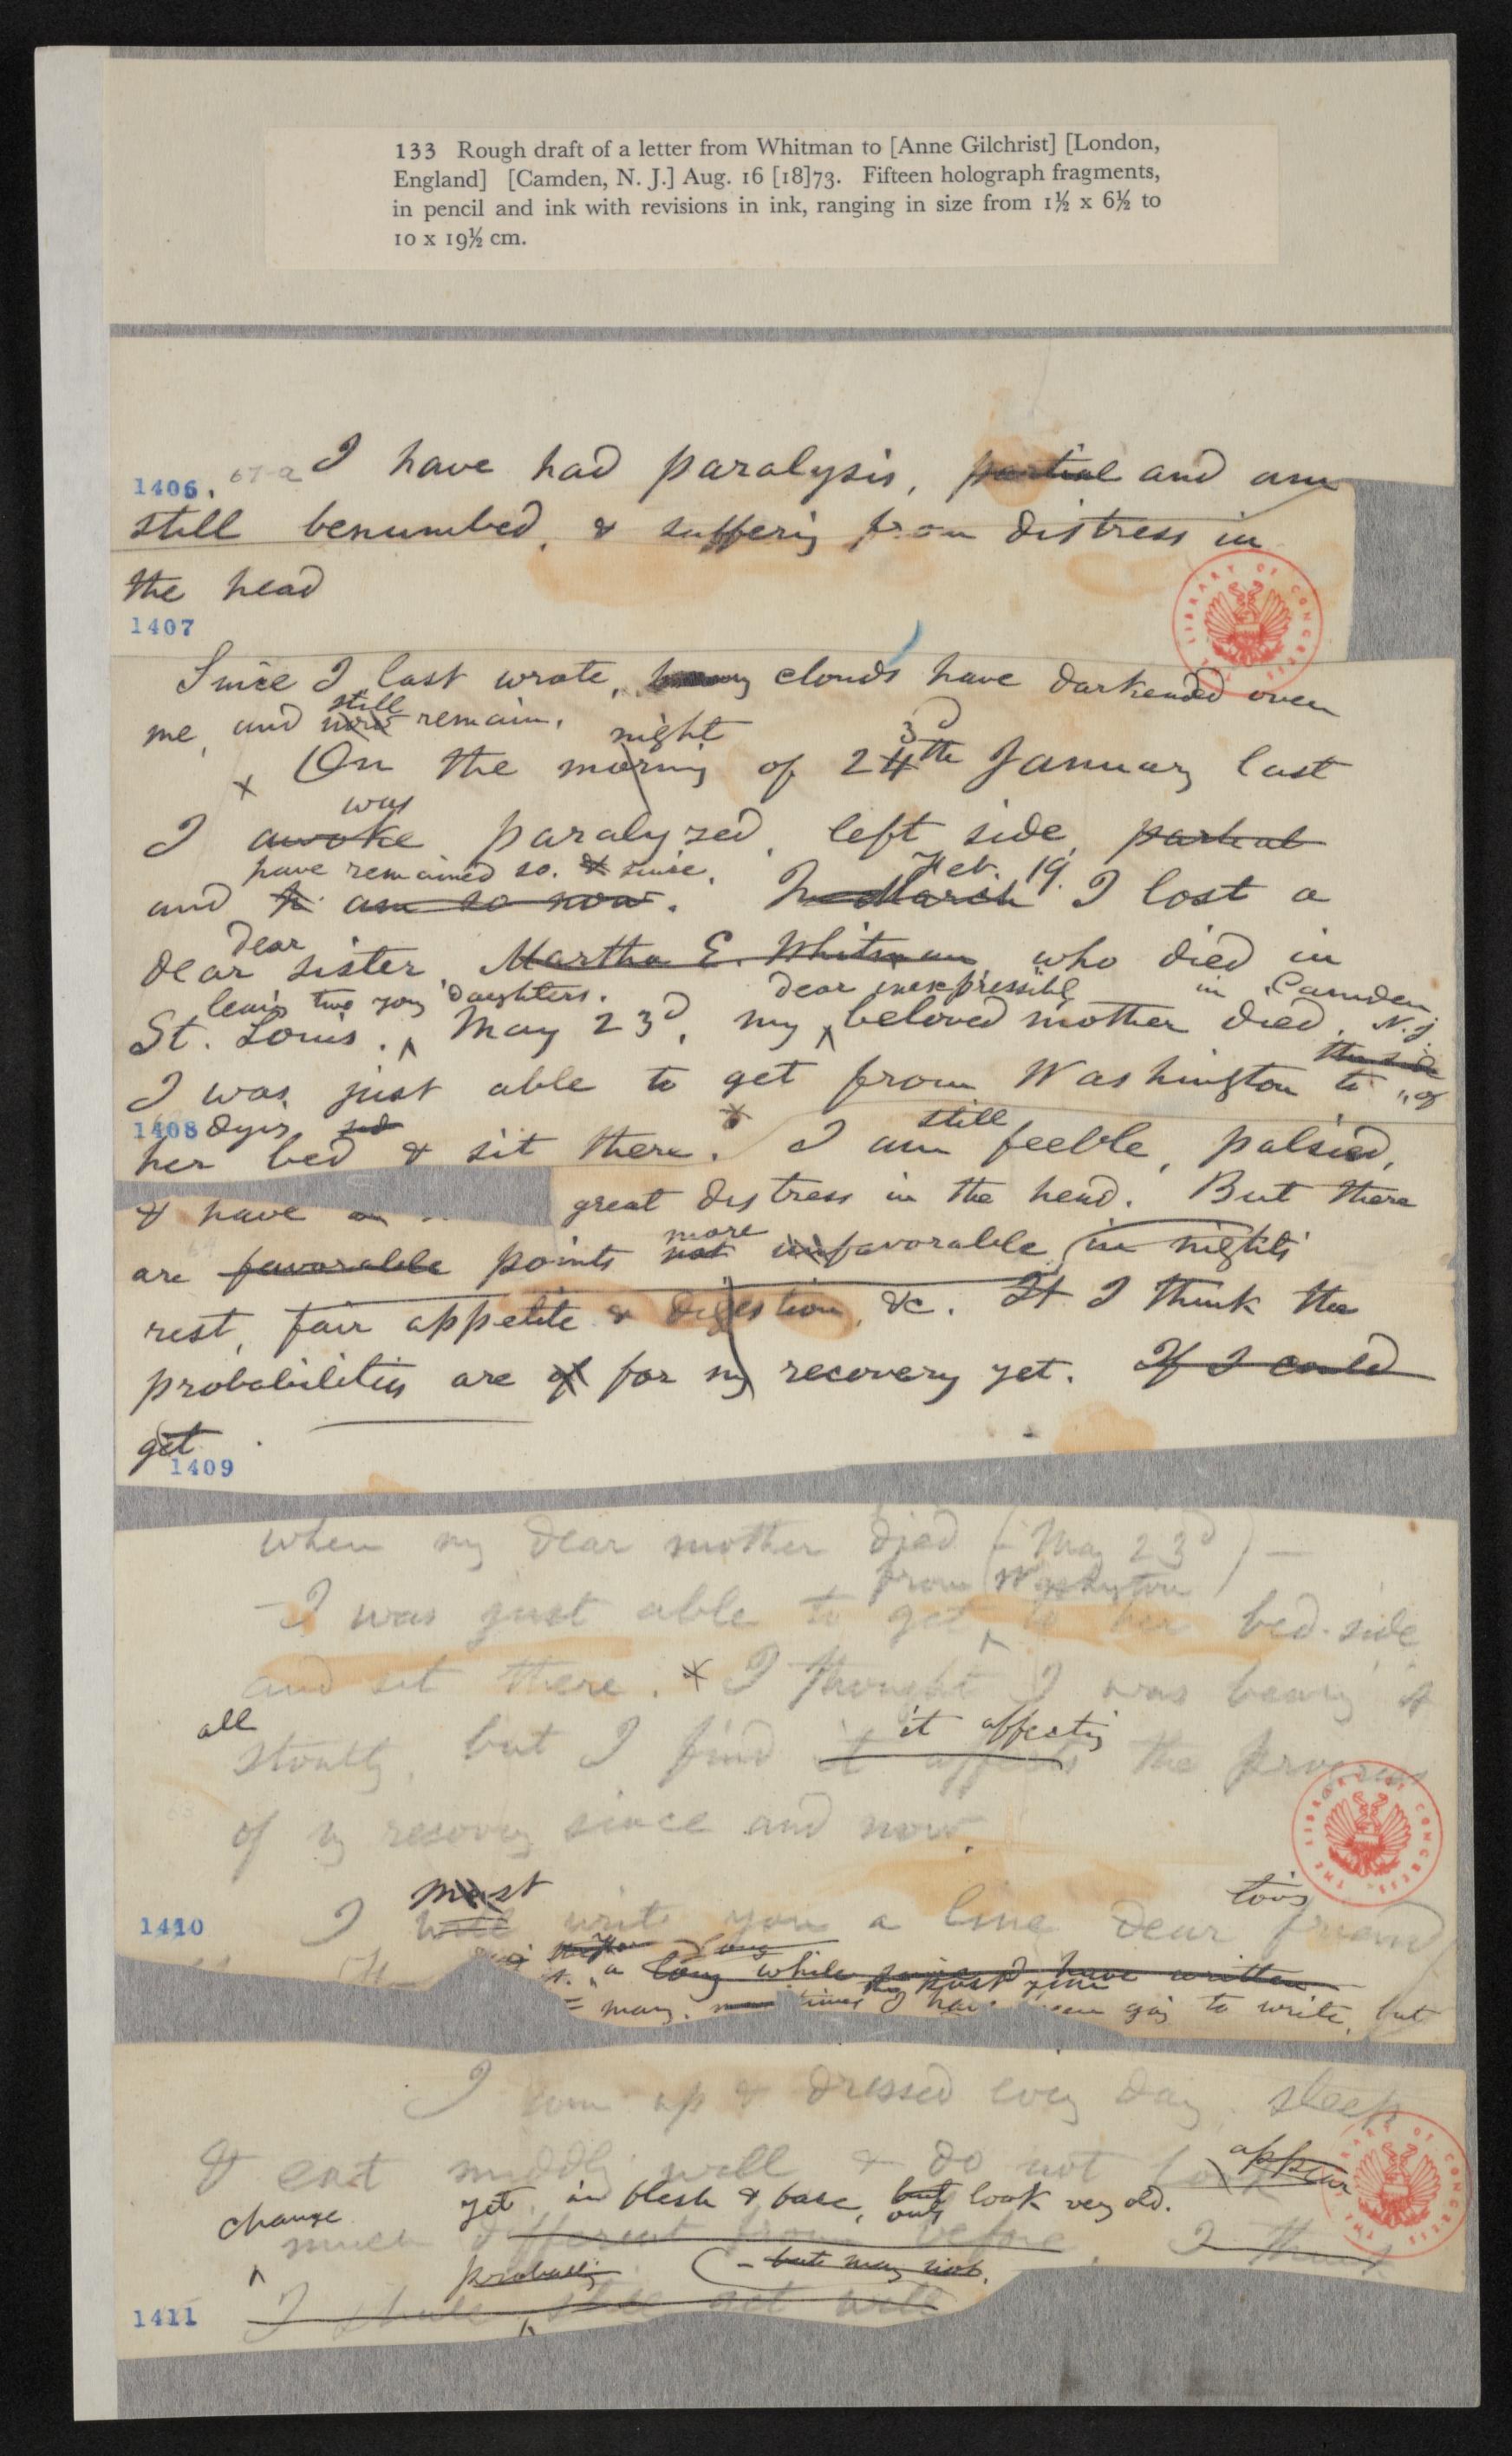 133 Rough draft of a letter from Whitman to [Anne Gilchrist] [London,
England] [Camden, N. J.] Aug. 16 [18]73. Fifteen holograph fragments,
in pencil and ink with revisions in ink, ranging in size from 1½ x 6½ to
10 x 19½ cm.
I have had paralysis, partial and am
1406.
still benumbed, & suffering from distress in
the head
1407
THE LIBRARY OF CONGRESS
Since I last wrote, clouds have darkened over
still
me, and now remain.
night 3d
On the morning of 24th January last
was
I awoke paralyzed, left side, partial
have remained so. & since. Feb. 19.
and am so now. In March I lost a
dear
dear sister, Martha E. Whitman who died in
leavig two yong daughters. dear inexpressibly in Camden
St. Louis. May 23d, my beloved mother died, N.J.
the side
I was just able to get from Washington to of
1408 dyig
her bed & sit there. I am still feeble, palsied,
& have great distress in the head. But there
more
are favorable points not unfavorable in nights
rest, fair appetite & digestion, &c. I think the
probabilities are of for my recovery yet. If I could
get
1409
when my dear mother died (May 23d)—
from Washington
—I was just able to get to her bed-side
and sit there. I thought I was bearing it
all it affectig
stoutly, but I find it affects the progress
of my recovery since and now.
THE LIBRARY OF CONGRESS
must
1410 I will write you a line dear friend
long
a long while since I have written
past
many times I have been goig to write, but
I am up & dressed every day, sleep
& eat middlig well & do not look appear
change yet, in flesh & face, but only look very old.
much different from before. I think
probably — but may not.
I shall get well
1411
THE LIBRARY OF CONGRESS